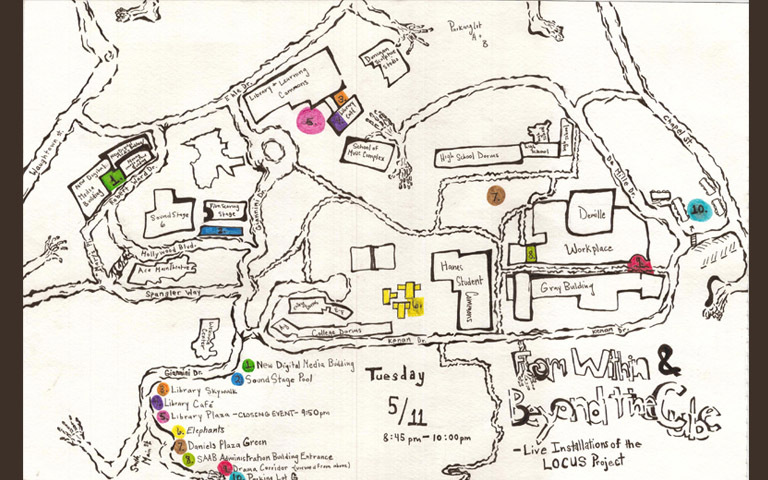 Parking Lot
A + B
Donnyan
Sculpture
Studio
Ehle Dr.
Library + Learning
Commons
3.
Library
Café
5.
School of
Music Complex
High School Dorms
Chapel St.
Waughtown St.
New Digital
Media
Building
1.
Film Scoring
Stage
Sound Stage
6
Giannini Dr.
Hollywood Blvd.
Ace
Spangler Way
7.
De Mille Dr.
10.
Demille
Workplace
8.
Gray Building
Hanes
Student
Commons
6.
College Dorms
Kenan Dr.
Kenan Dr.
Welcome
Center
Giannini Dr.
South
Main St.
1. New Digital Media Building
2. Sound Stage Pool
3. Library Skywalk
Library Café
5. Library Plaza - CLOSING EVENT - 9:50pm
6. Elephants
7. Daniels Plaza Green
8. SAAB Administration Building Entrance
Drama Corridor (viewed from above)
10. Parking Lot G
Tuesday
5/11
8:45 pm - 10:00pm
From Within &
Beyond the Cube
- Live Installations of the
LOCUS Project